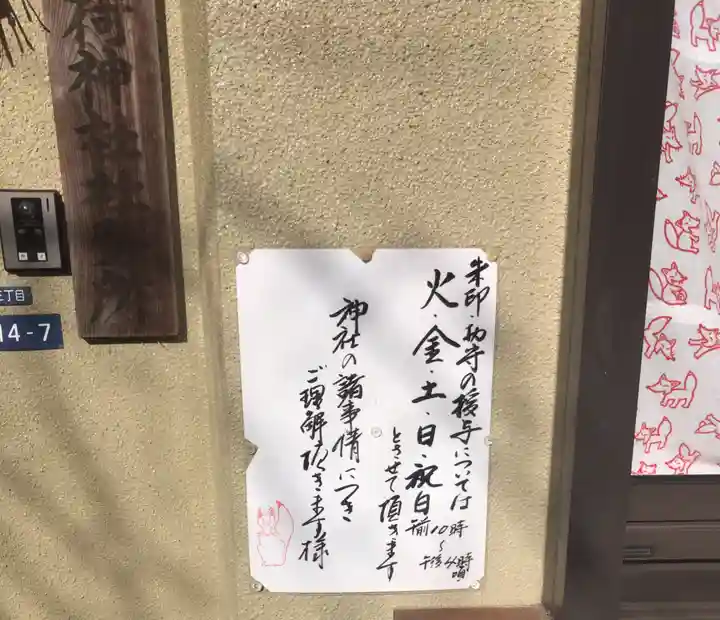 朱印・御守の授与については
火・金・土・日・祝日
前10時〜午後4時頃
とさせて頂きます
神社の諸事情につき
ご理解頂きます様
荷神社社務所
三丁目
14-7